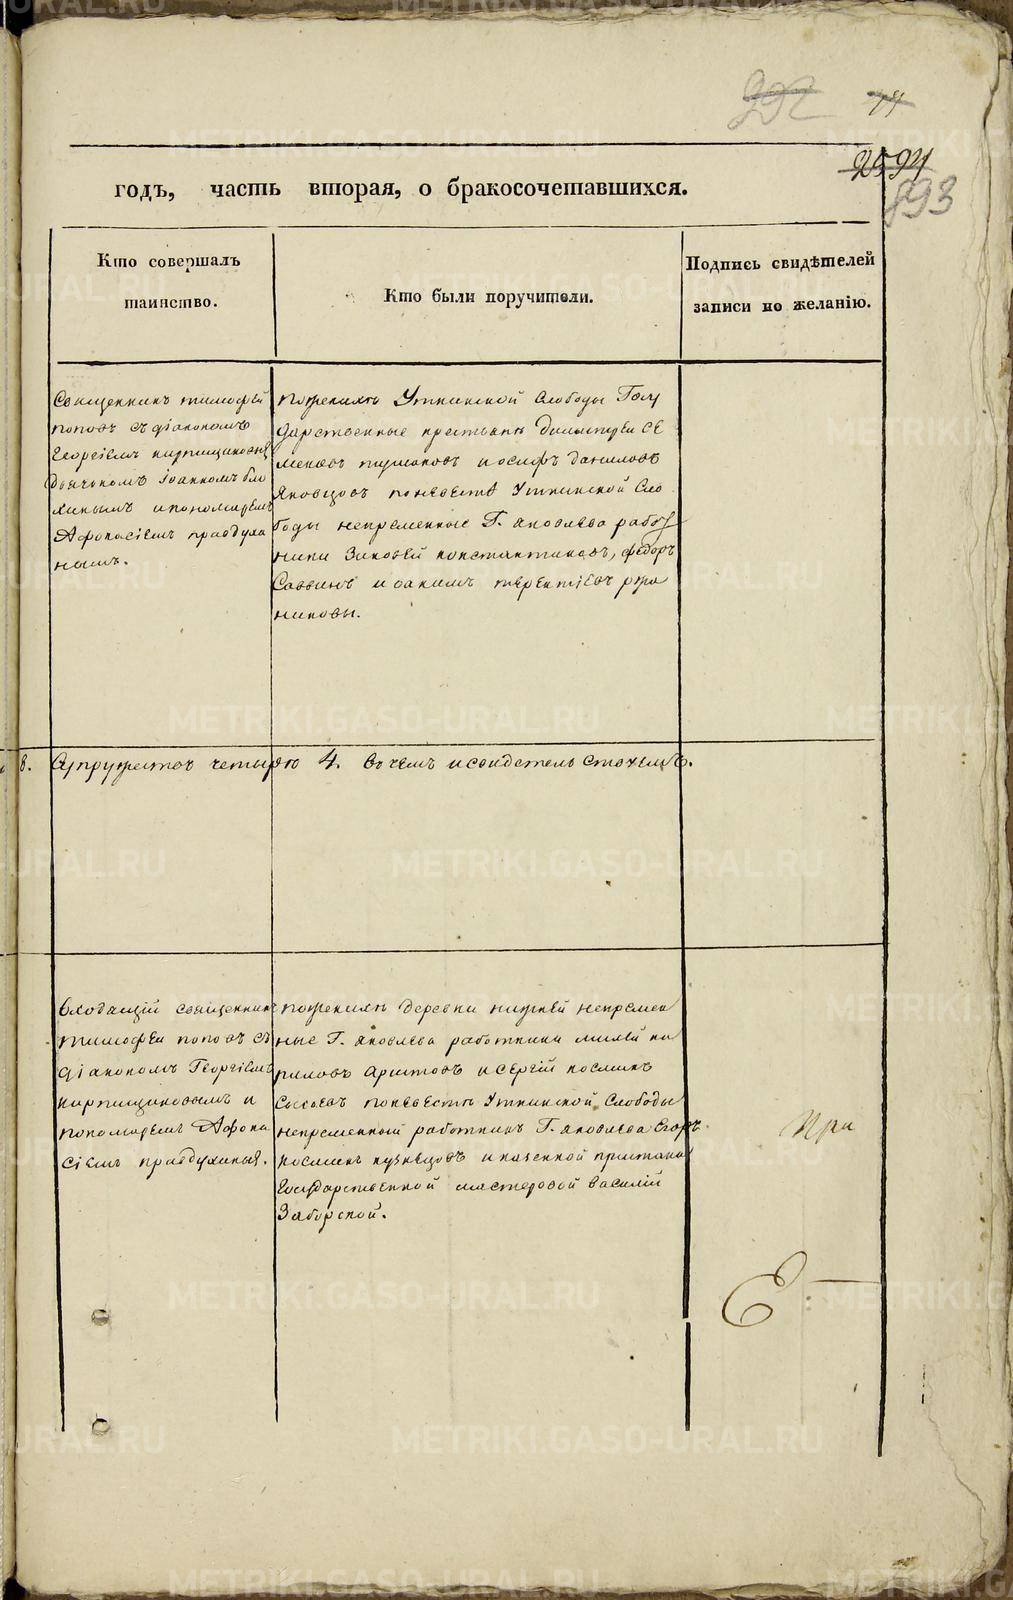 292
74
2594
893
годъ, часть вторая, о бракосочетавшихся.
Кто совершалъ
таинство.
Кто были поручители.
Подпись свидѣтелей
записи по желанію.
Священникъ тимофей
поповъ съ діакономъ
Георгіемъ кирпищиковымъ
Дьячкомъ Іоанномъ
и пономаремъ
Афонасіемъ правдухи
нымъ.
пожениху Уткинской слободы Госу
дарственные крестьяне Димитрей Се
меновъ пушковъ и осифъ даниловъ
яковцовъ поневестѣ Уткинской Сло
боды непременные Г. яковлева рабо
ники Зиновей константиновъ, федоръ
Саввинъ и оакимъ терентіевъ
никовы.
в. Супружествъ четыре 4. въ чемъ и свидетельствуемъ.
Входящій священникъ
тимофеи поповъ съ
діакономъ Георгіемъ
кирпищиковымъ и
пономаремъ Афона
сіемъ правдухинымъ.
пожениху деревни нижней непремен
ные Г. яковлева работники
риловъ аристовъ и сергій космин
Сысоевъ поневесте Уткинской Слободы
непременный работникъ Г. яковлева Егоръ
космин кузнецовъ и казенной пристани
Государственной мастеровой василій
Заборской.
При
Е
METRIKI.GASO-URAL.RU